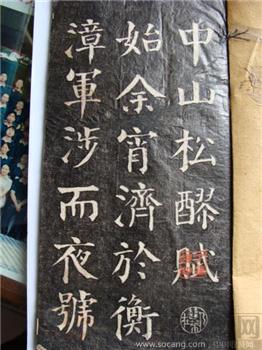 中山松醪賦
始余宵濟於衡
漳軍涉而夜號
www.socang.com